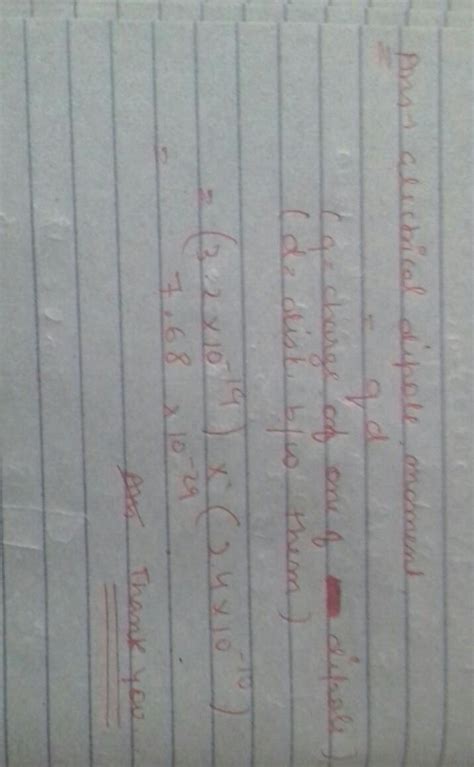 Ans → electrical dipole moment
= qd
( q = charge of one of dipole )
( d = dist. b/w them )
= (3.2 x 10⁻¹⁹) x (2.4 x 10⁻¹⁰)
= 7.68 x 10⁻²⁹
Ans Thank you